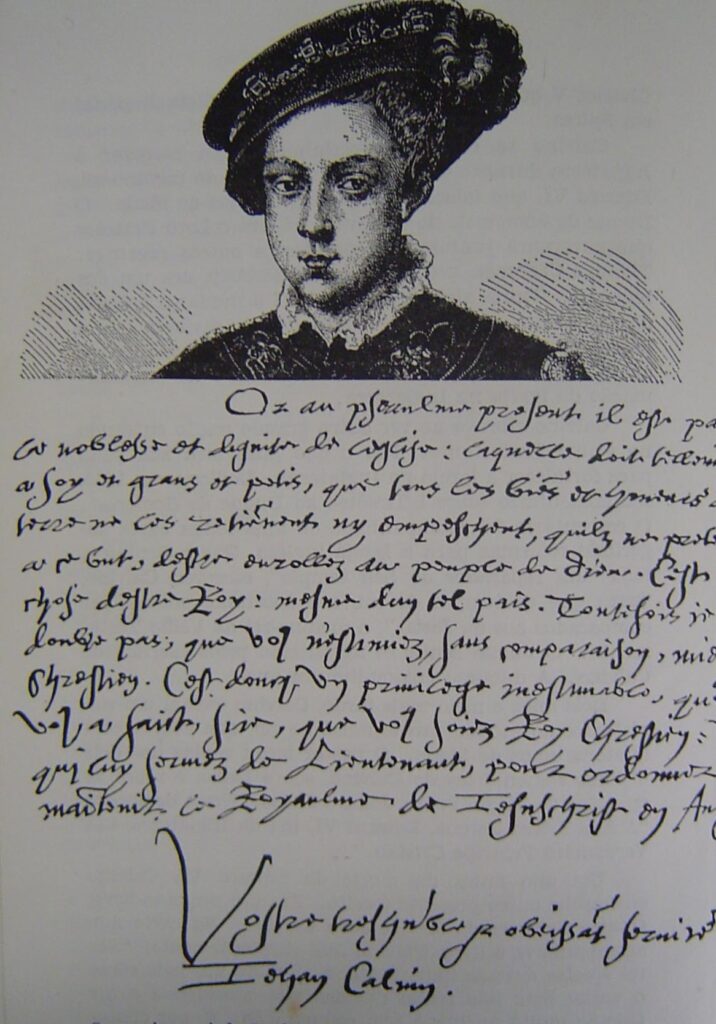 Or au pseaulme present il est pa
la noblesse et dignite de leglise: laquelle doit tellem
a soy et grans et petis, que tous les biēs et honeurs
terre ne les retiēnent ny empeschent, quilz ne prete
a ce but, destre enrollez au peuple de Dieu. Cest
chose destre Roy: mesme duy tel pais. Toutefois je
doubte pas, que voꝰ nestimiez, sans comparaison, mie
Chrestien. Cest doncq, vn privilege inestimable, que
voꝰ a faict, sire, que voꝰ soiez Roy Chrestien:
qui luy servez de Lieutenant, pour ordonner
maītenir le Royaulme de Iesuschrist en Ang
Vostre treshūble & obeissāt servite
Iehan Calvin.